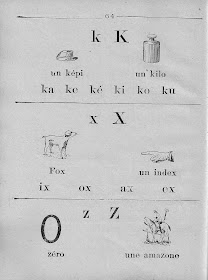 k K
un képi un kilo
ka ke ké ki ko ku
x X
Fox un index
ix ox ax ex
z Z
zéro une amazone